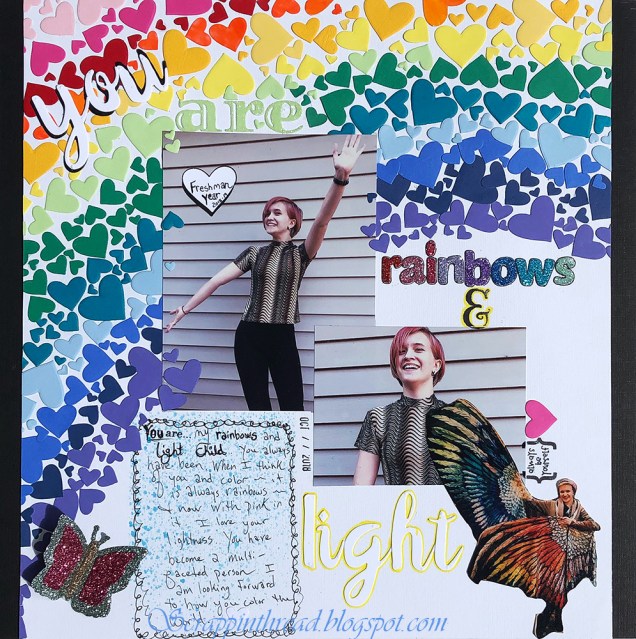 you
are
Freshman
year
rainbows
&
always
be
yourself
light
You are... my rainbows and
Light Child. You always
have been. When I think
of you and color ~ it
is always rainbows ~
& now with pink in
it. I love your
lightness. You have
become a multi-
faceted person. I
am looking forward
to how you color the
Scrappinthread.blogspot.com